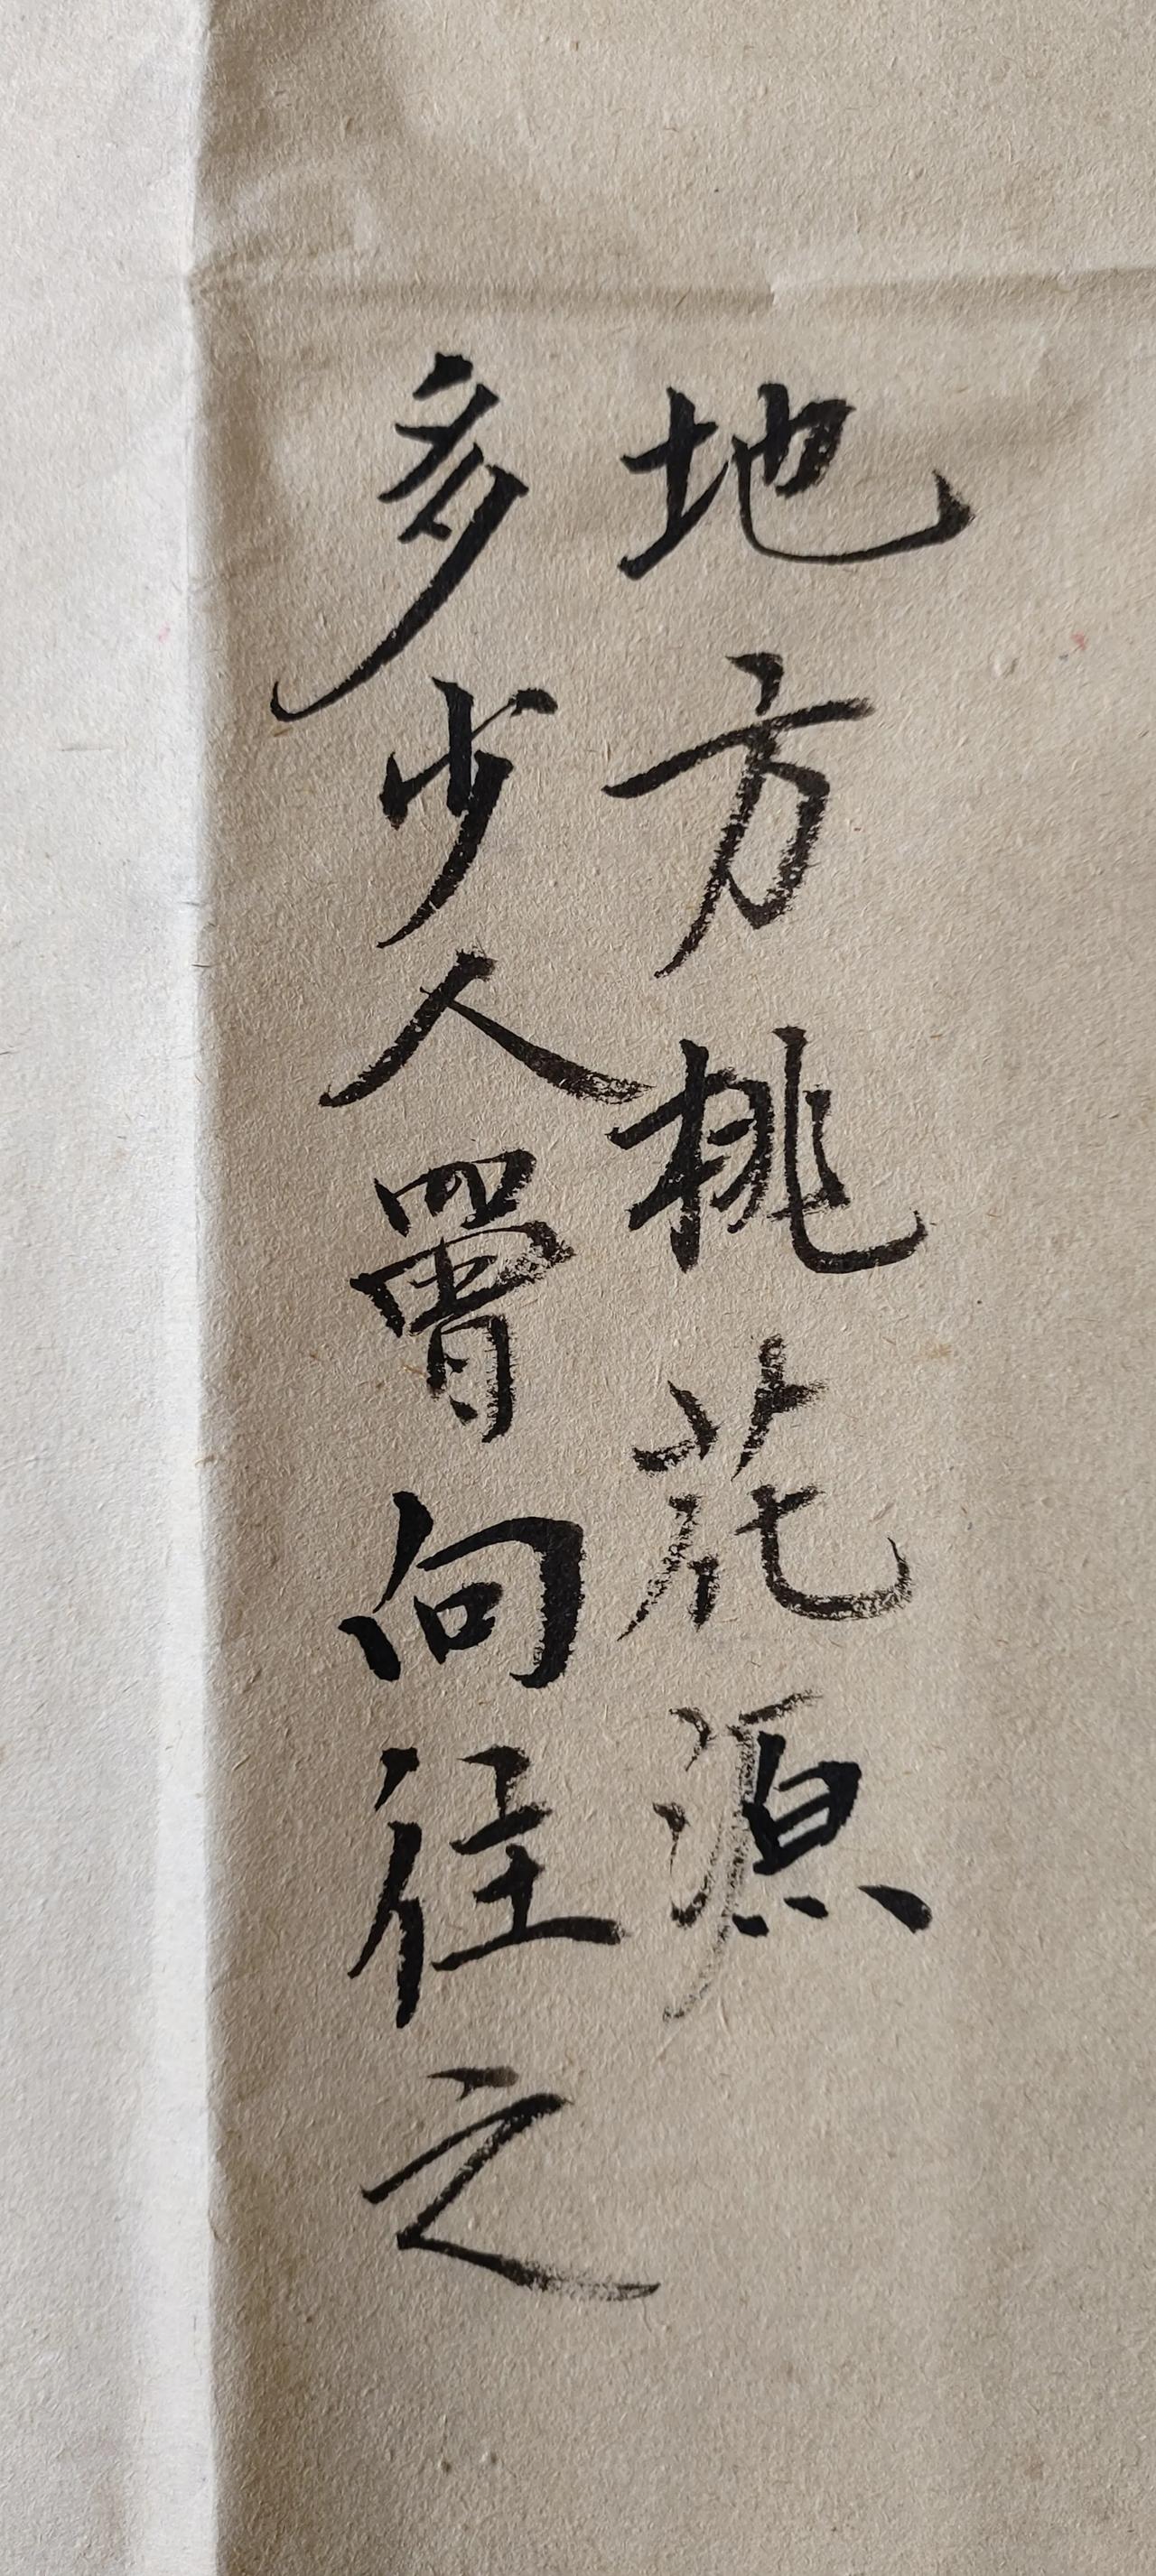 地方桃花源
多少人曾向往之